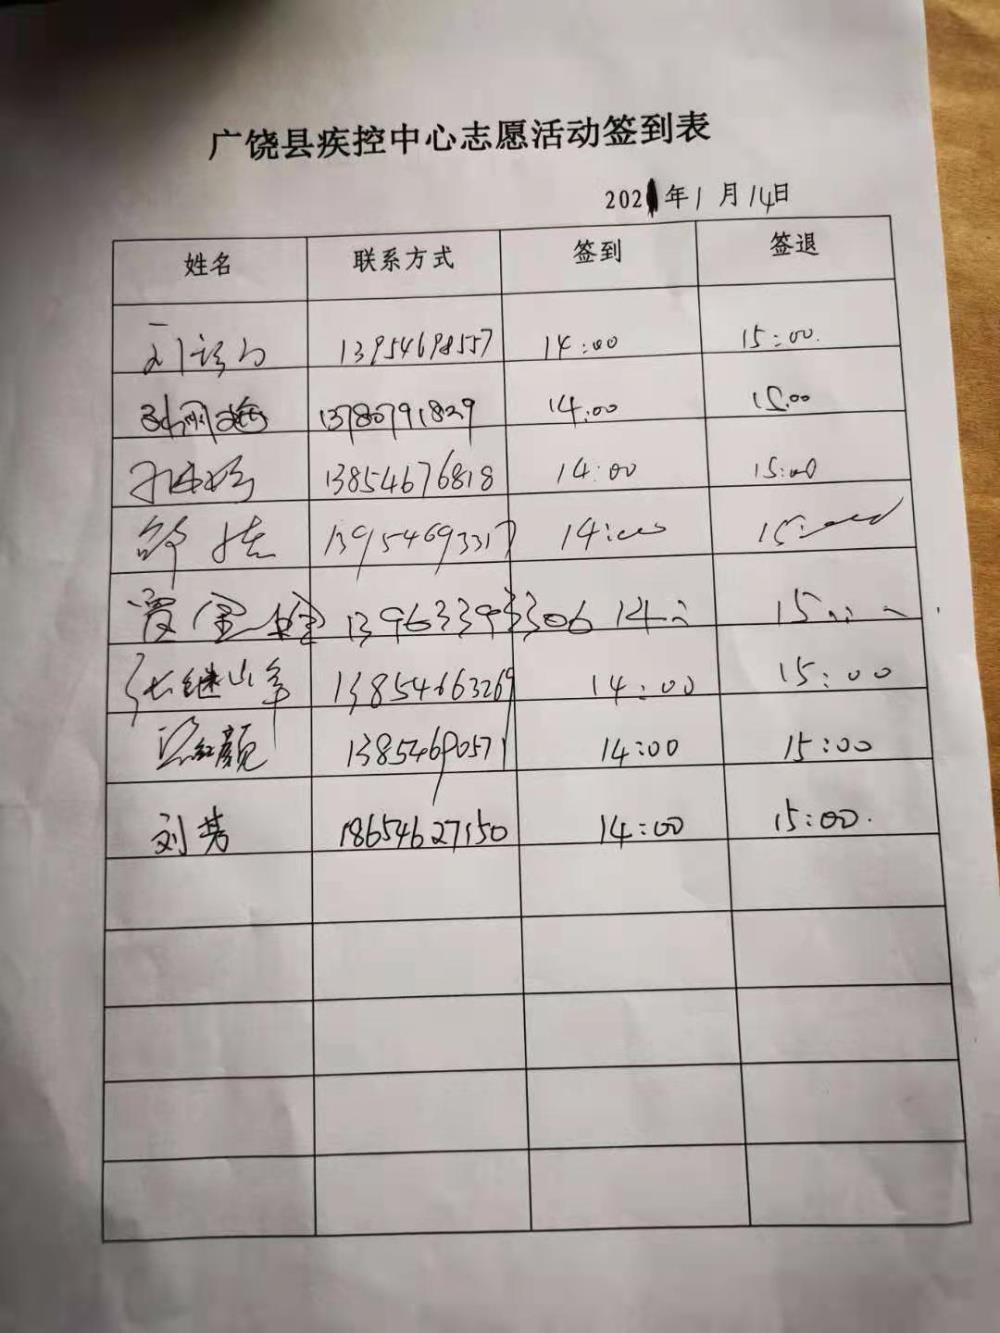 广饶县疾控中心志愿活动签到表
2021年1月14日
姓名 联系方式 签到 签退
13954698557 14:00 15:00.
13780791829 14:00 15:00
13854676818 14:00 15:00
13954693317 14:00 15:00
贾金 13963393306 14:: 15::
张继山 13854663269 14:00 15:00
红颜 13854690571 14:00 15:00
刘芳 18654627150 14:00 15:00.